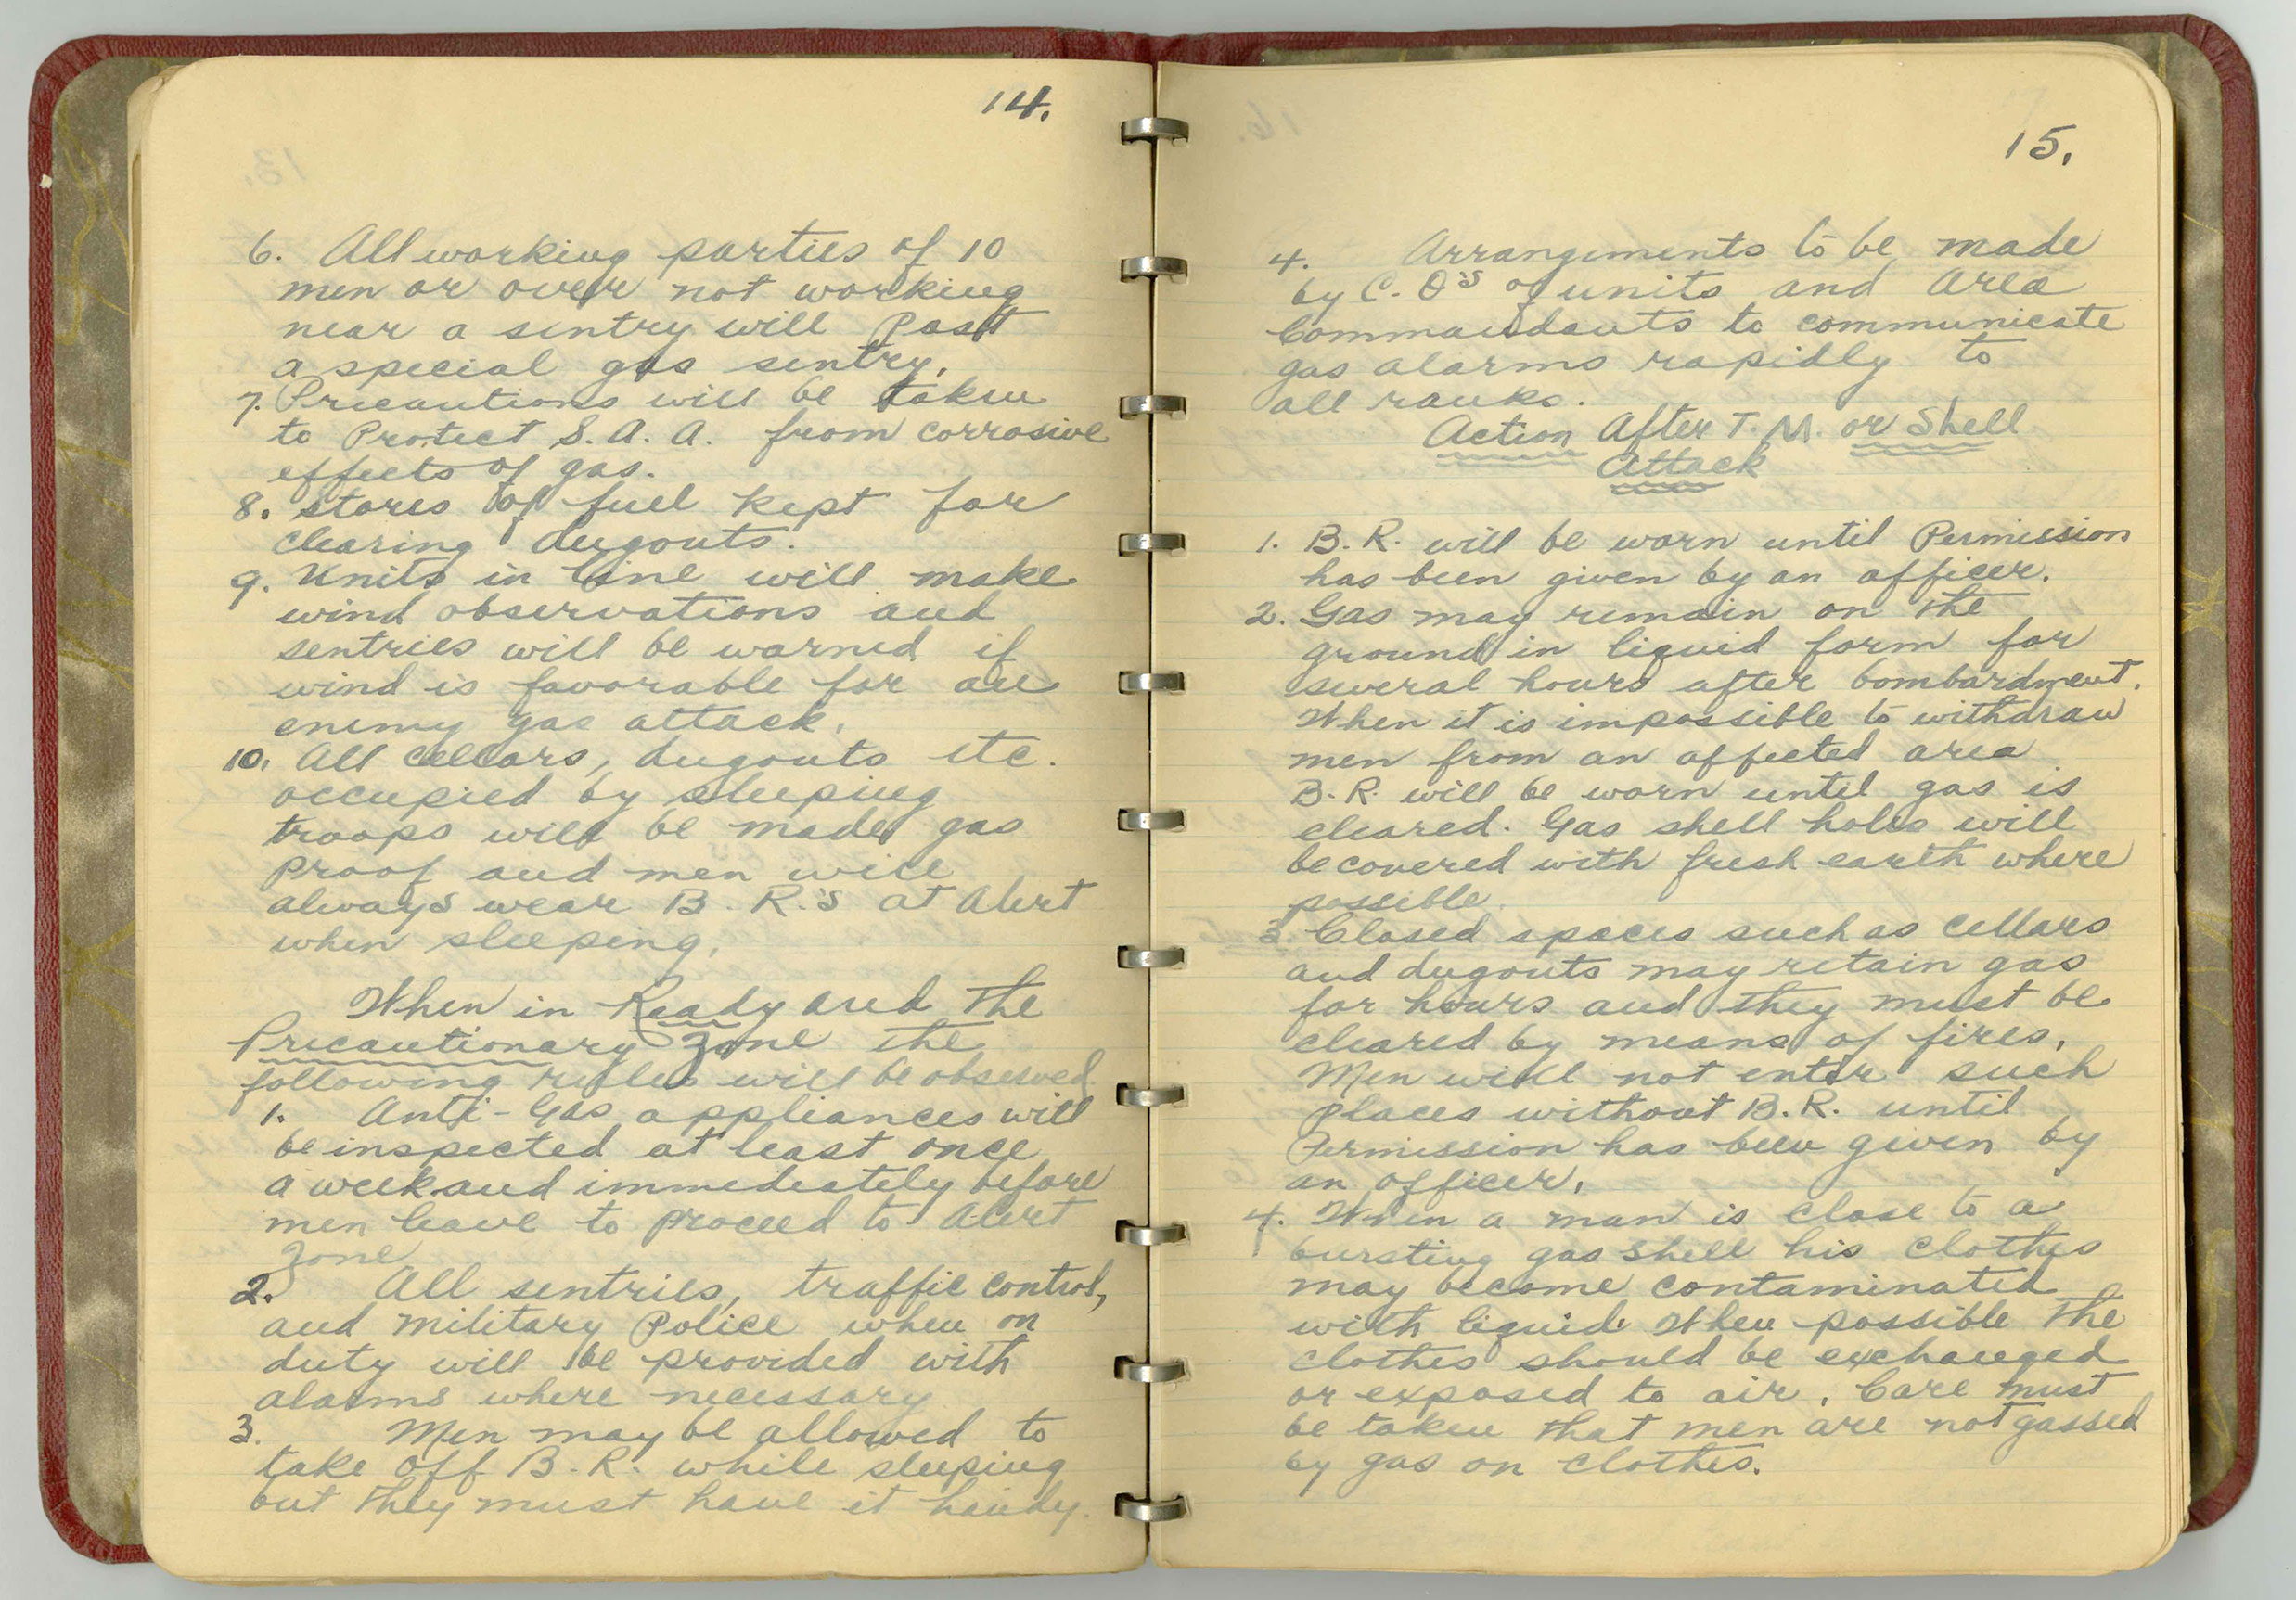 14.
6. All working parties of 10
men or over not working
near a sentry will Post
a special gas sentry.
7. Precautions will be taken
to Protect S. A. A. from corrosive
effects of gas.
8. Stores of fuel kept for
clearing dugouts.
9. Units in line will make
wind observations and
sentries will be warned if
wind is favorable for an
enemy gas attack.
10. All cellars, dugouts etc.
occupied by sleeping
troops will be made gas
proof and men will
always wear B. R.'s at Alert
when sleeping.
When in Ready and the
Precautionary Zone the
following rules will be observed
1. Anti-Gas appliances will
be inspected at least once
a week and immediately before
men leave to proceed to Alert
Zone
2. All sentries, traffic control,
and Military Police when on
duty will be provided with
alarms where necessary
3. Men may be allowed to
take off B. R. while sleeping
but they must have it handy.
15.
4. Arrangements to be made
by C. O's of units and Area
Commandants to communicate
gas alarms rapidly to
all ranks.
Action After T. M. or Shell
Attack
1. B. R. will be worn until Permission
has been given by an officer.
2. Gas may remain on the
ground in liquid form for
several hours after bombardment.
When it is impossible to withdraw
men from an affected area
B. R. will be worn until gas is
cleared. Gas shell holes will
be covered with fresh earth where
possible.
3. Closed spaces such as cellars
and dugouts may retain gas
for hours and they must be
cleared by means of fires.
Men will not enter such
places without B. R. until
Permission has been given by
an officer.
4. When a man is close to a
bursting gas shell his clothes
may become contaminated
with liquid. When possible the
clothes should be exchanged
or exposed to air. Care must
be taken that men are not gassed
by gas on clothes.